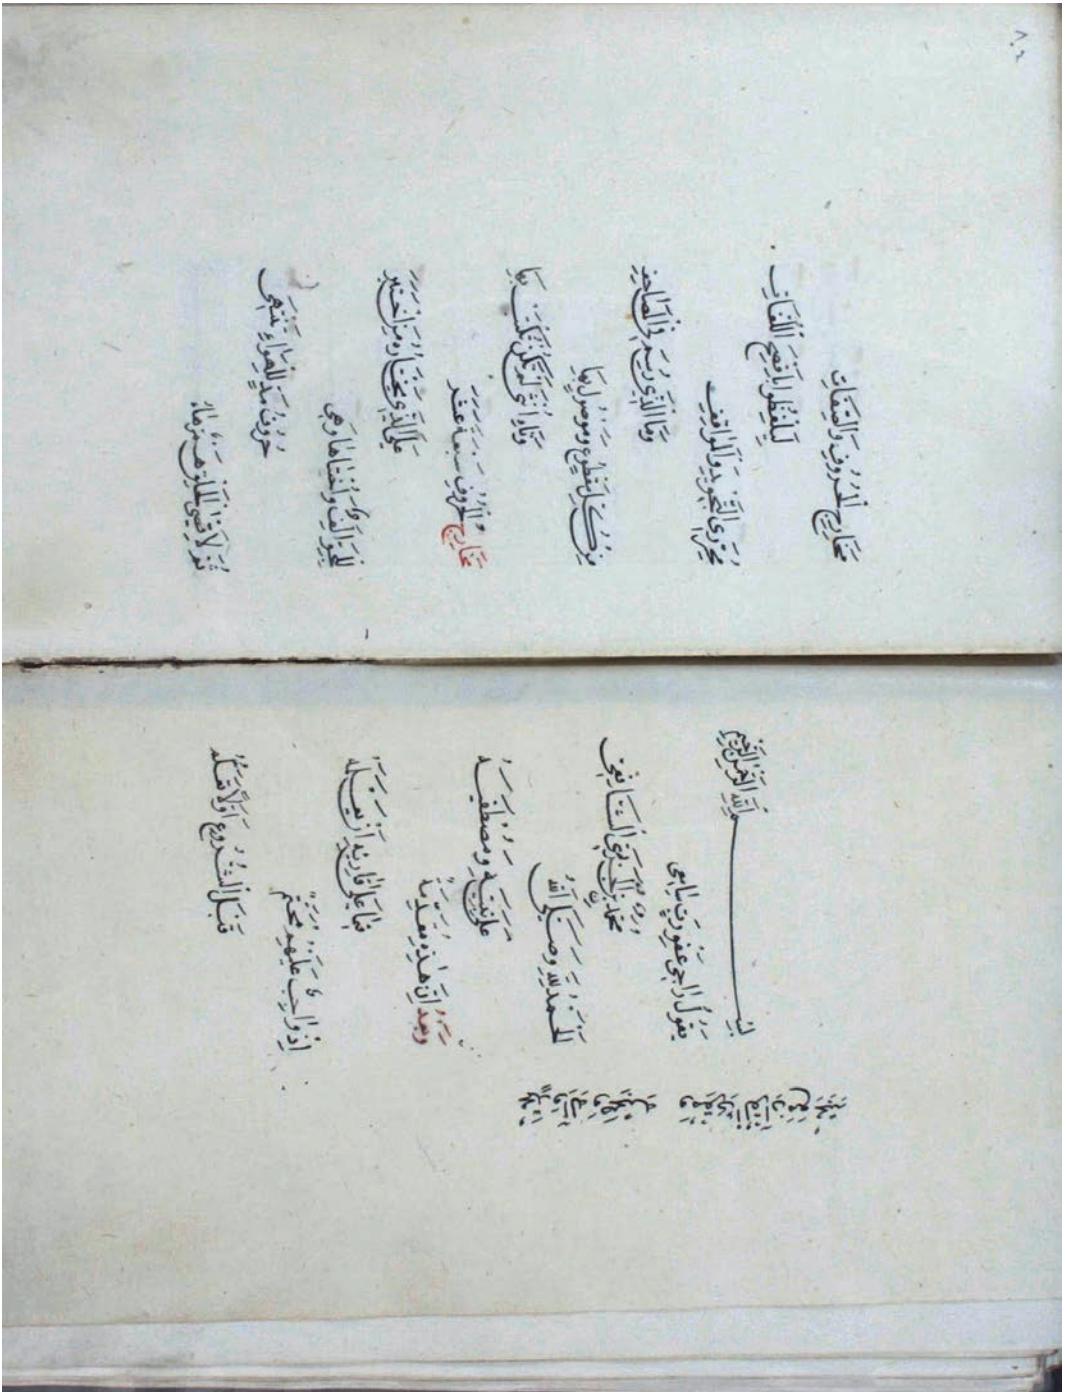 بسم الله الرحمن الرحيم
يَقُولُ رَاجِي عَفْوِ رَبٍّ سَامِعِ
مُحَمَّدُ بْنُ الْجَزَرِيِّ الشَّافِعِي
الْحَمْدُ لِلّٰهِ وَصَلَّى اللّٰهُ
عَلَى نَبِيِّهِ وَمُصْطَفٰيهُ
وَبَعْدُ اِنَّ هٰذِهِ مُقَدِّمَةٌ
فِيمَا عَلَى قَارِئِهِ اَنْ يَعْلَمَهُ
اِذْ وَاجِبٌ عَلَيْهِمُ مُحَتَّمٌ
قَبْلَ الشُّرُوعِ اَوَّلًا
مَخَارِجَ الْحُرُوفِ وَالصِّفَاتِ
لِيَلْفِظُوا بِاَفْصَحِ اللُّغَاتِ
مُحَرِّرِي التَّجْوِيدِ وَالْمَوَاقِفِ
وَمَا الَّذِي رُسِمَ فِي الْمَصَاحِفِ
مِنْ كُلِّ مَقْطُوعٍ وَمَوْصُولٍ بِهَا
وَتَاءِ اُنْثَى لَمْ تَكُنْ تُكْتَبْ بِهَا
مَخَارِجُ الْحُرُوفِ سَبْعَةَ عَشَرَ
عَلَى الَّذِي يَخْتَارُهُ مَنِ اخْتَبَرَ
اَلِفٌ وَاُخْتَاهَا وَهِيَ
حُرُوفُ مَدٍّ لِلْهَوَاءِ تَنْتَهِي
ثُمَّ لِاَقْصَى الْحَلْقِ هَمْزٌ هَاءٌ